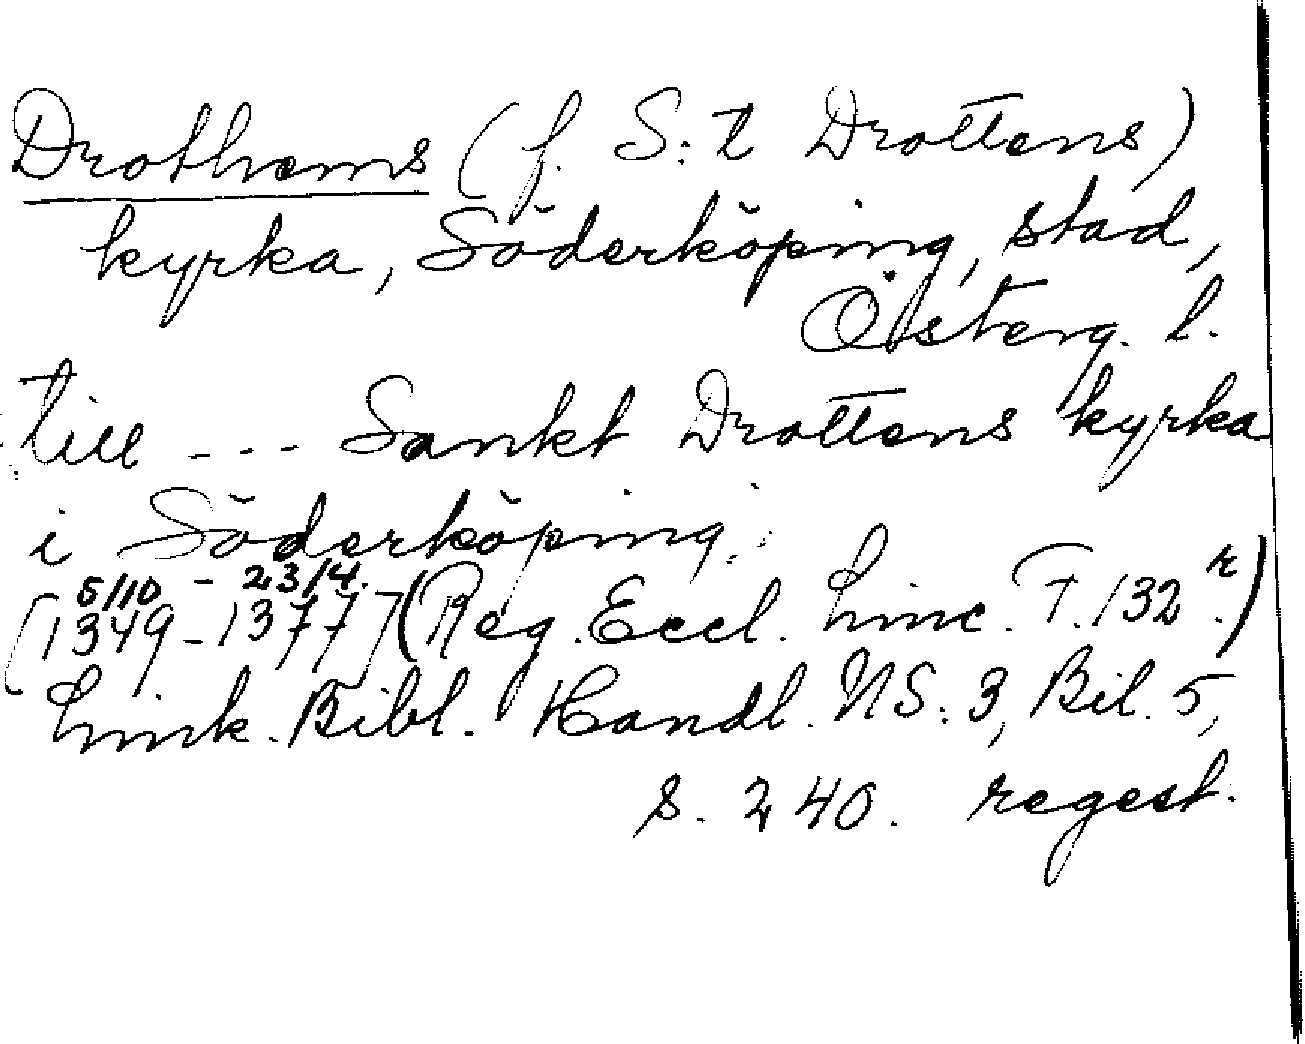 Drothems (f. S:t Drottens)
kyrka, Söderköping, stad,
Österg. l.
till --- Sankt Drottens kyrka
i Söderköping.
5/10 - 23/4.
[1349-1377] (Reg. Eccl. Linc. F. 132 r.)
Link. Bibl. Handl. NS: 3, Bil. 5,
s. 240. regest.